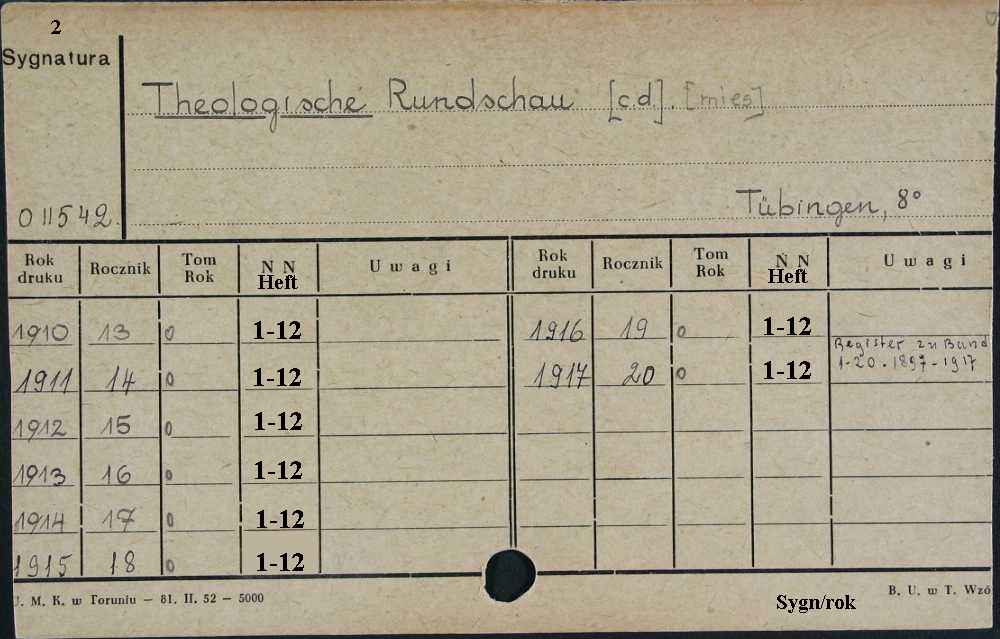 2
Sygnatura
Theologische Rundschau [c.d]. [mies]
Tübingen, 8°
011542
Rok druku Rocznik Tom Rok N N Heft Uwagi Rok druku Rocznik Tom Rok N N Heft Uwagi
1910 13 0 1-12 1916 19 0 1-12
1911 14 0 1-12 1917 20 0 1-12 Register zu Band 1-20. 1897-1917
1912 15 0 1-12
1913 16 0 1-12
1914 17 0 1-12
1915 18 0 1-12
U. M. K. w Toruniu — 81. II. 52 — 5000
B. U. w T. Wzó
Sygn/rok